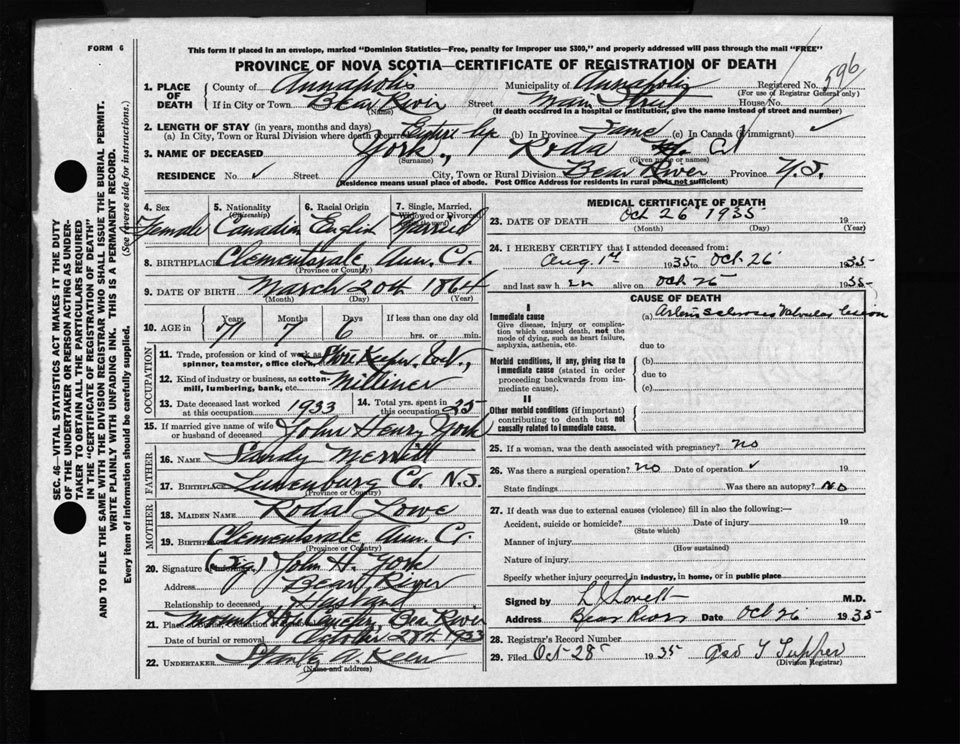 FORM 6
This form if placed in an envelope, marked "Dominion Statistics—Free, penalty for improper use $300," and properly addressed will pass through the mail "FREE"
PROVINCE OF NOVA SCOTIA—CERTIFICATE OF REGISTRATION OF DEATH
596
1. PLACE OF DEATH
County of Annapolis Municipality of Annapolis Registered No.
(For use of Registrar General only)
If in City or Town Bear River Street Main Street House No.
(Name) (If death occurred in a hospital or institution, give the name instead of street and number)
2. LENGTH OF STAY (in years, months and days)
(a) In City, Town or Rural Division where death occurred (b) In Province Same (c) In Canada (if immigrant) ✓
3. NAME OF DECEASED York, Roda
(Surname) (Given name or names)
RESIDENCE No. ✓ Street City, Town or Rural Division Bear River Province N.S.
(Residence means usual place of abode. Post Office Address for residents in rural parts not sufficient)
4. Sex Female
5. Nationality (Citizenship) Canadian
6. Racial Origin English
7. Single, Married, Widowed or Divorced Married
8. BIRTHPLACE Clementsvale, Ann. Co.
(Province or Country)
9. DATE OF BIRTH March 20th 1864
(Month) (Day) (Year)
10. AGE in Years Months Days If less than one day old
71 7 6 hrs. or min.
OCCUPATION
11. Trade, profession or kind of work as spinner, teamster, office clerk, Store Keeper,
12. Kind of industry or business, as cotton-mill, lumbering, bank, etc. Milliner
13. Date deceased last worked at this occupation 1933 14. Total yrs. spent in this occupation 25
15. If married give name of wife or husband of deceased John Henry York
FATHER
16. NAME Sandy Merritt
17. BIRTHPLACE Lunenburg Co. N.S.
(Province or Country)
MOTHER
18. MAIDEN NAME Roda Lowe
19. BIRTHPLACE Clementsvale Ann. Co.
(Province or Country)
20. Signature of Informant John H. York
Address Bear River
Relationship to deceased Husband
21. Place of Burial, Bear River
Date of burial or removal October 28th 1933
22. UNDERTAKER A. Keen
(Name and address)
MEDICAL CERTIFICATE OF DEATH
23. DATE OF DEATH Oct 26 1935 19
(Month) (Day) (Year)
24. I HEREBY CERTIFY that I attended deceased from:
Aug. 1st 1935 to Oct 26 1935
and last saw h er alive on Oct 25 1935
CAUSE OF DEATH
I
Immediate cause
Give disease, injury or complication which caused death, not the mode of dying, such as heart failure, asphyxia, asthenia, etc.
(a) Arterio sclerosis Valvular lesion
due to
Morbid conditions, if any, giving rise to immediate cause (stated in order proceeding backwards from immediate cause).
(b)
due to
(c)
II
Other morbid conditions (if important) contributing to death but not causally related to immediate cause.
25. If a woman, was the death associated with pregnancy? no
26. Was there a surgical operation? no Date of operation ✓ 19
State findings Was there an autopsy? no
27. If death was due to external causes (violence) fill in also the following:—
Accident, suicide or homicide? Date of injury 19
(State which)
Manner of injury
(How sustained)
Nature of injury
Specify whether injury occurred in industry, in home, or in public place
Signed by L J Lovett M.D.
Address Bear River Date Oct 26 1935
28. Registrar's Record Number
29. Filed Oct 28 1935 Geo T Tupper
(Division Registrar)
SEC. 46—VITAL STATISTICS ACT MAKES IT THE DUTY
OF THE UNDERTAKER OR PERSON ACTING AS UNDER-
TAKER TO OBTAIN ALL THE PARTICULARS REQUIRED
IN THE "CERTIFICATE OF REGISTRATION OF DEATH"
AND TO FILE THE SAME WITH THE DIVISION REGISTRAR WHO SHALL ISSUE THE BURIAL PERMIT.
WRITE PLAINLY WITH UNFADING INK. THIS IS A PERMANENT RECORD.
Every item of information should be carefully supplied. (See reverse side for instructions.)